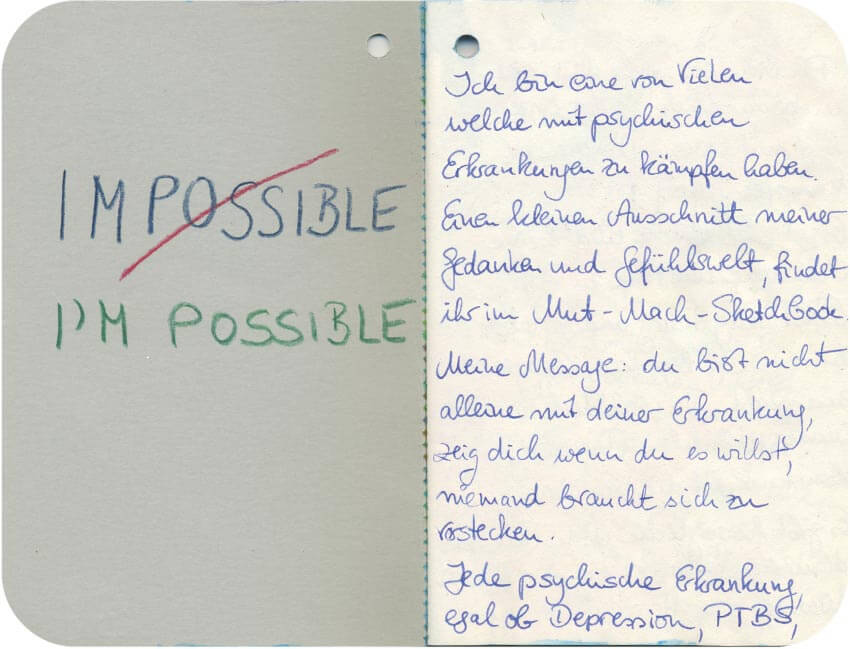 IMPOSSIBLE
I'M POSSIBLE
Ich bin eine von Vielen
welche mit psychischen
Erkrankungen zu kämpfen haben.
Einen kleinen Ausschnitt meiner
Gedanken und Gefühlswelt, findet
ihr im Mut-Mach-Sketchbook.
Meine Message: du bist nicht
alleine mit deiner Erkrankung,
zeig dich wenn du es willst,
niemand braucht sich zu
verstecken.
Jede psychische Erkrankung,
egal ob Depression, PTBS,